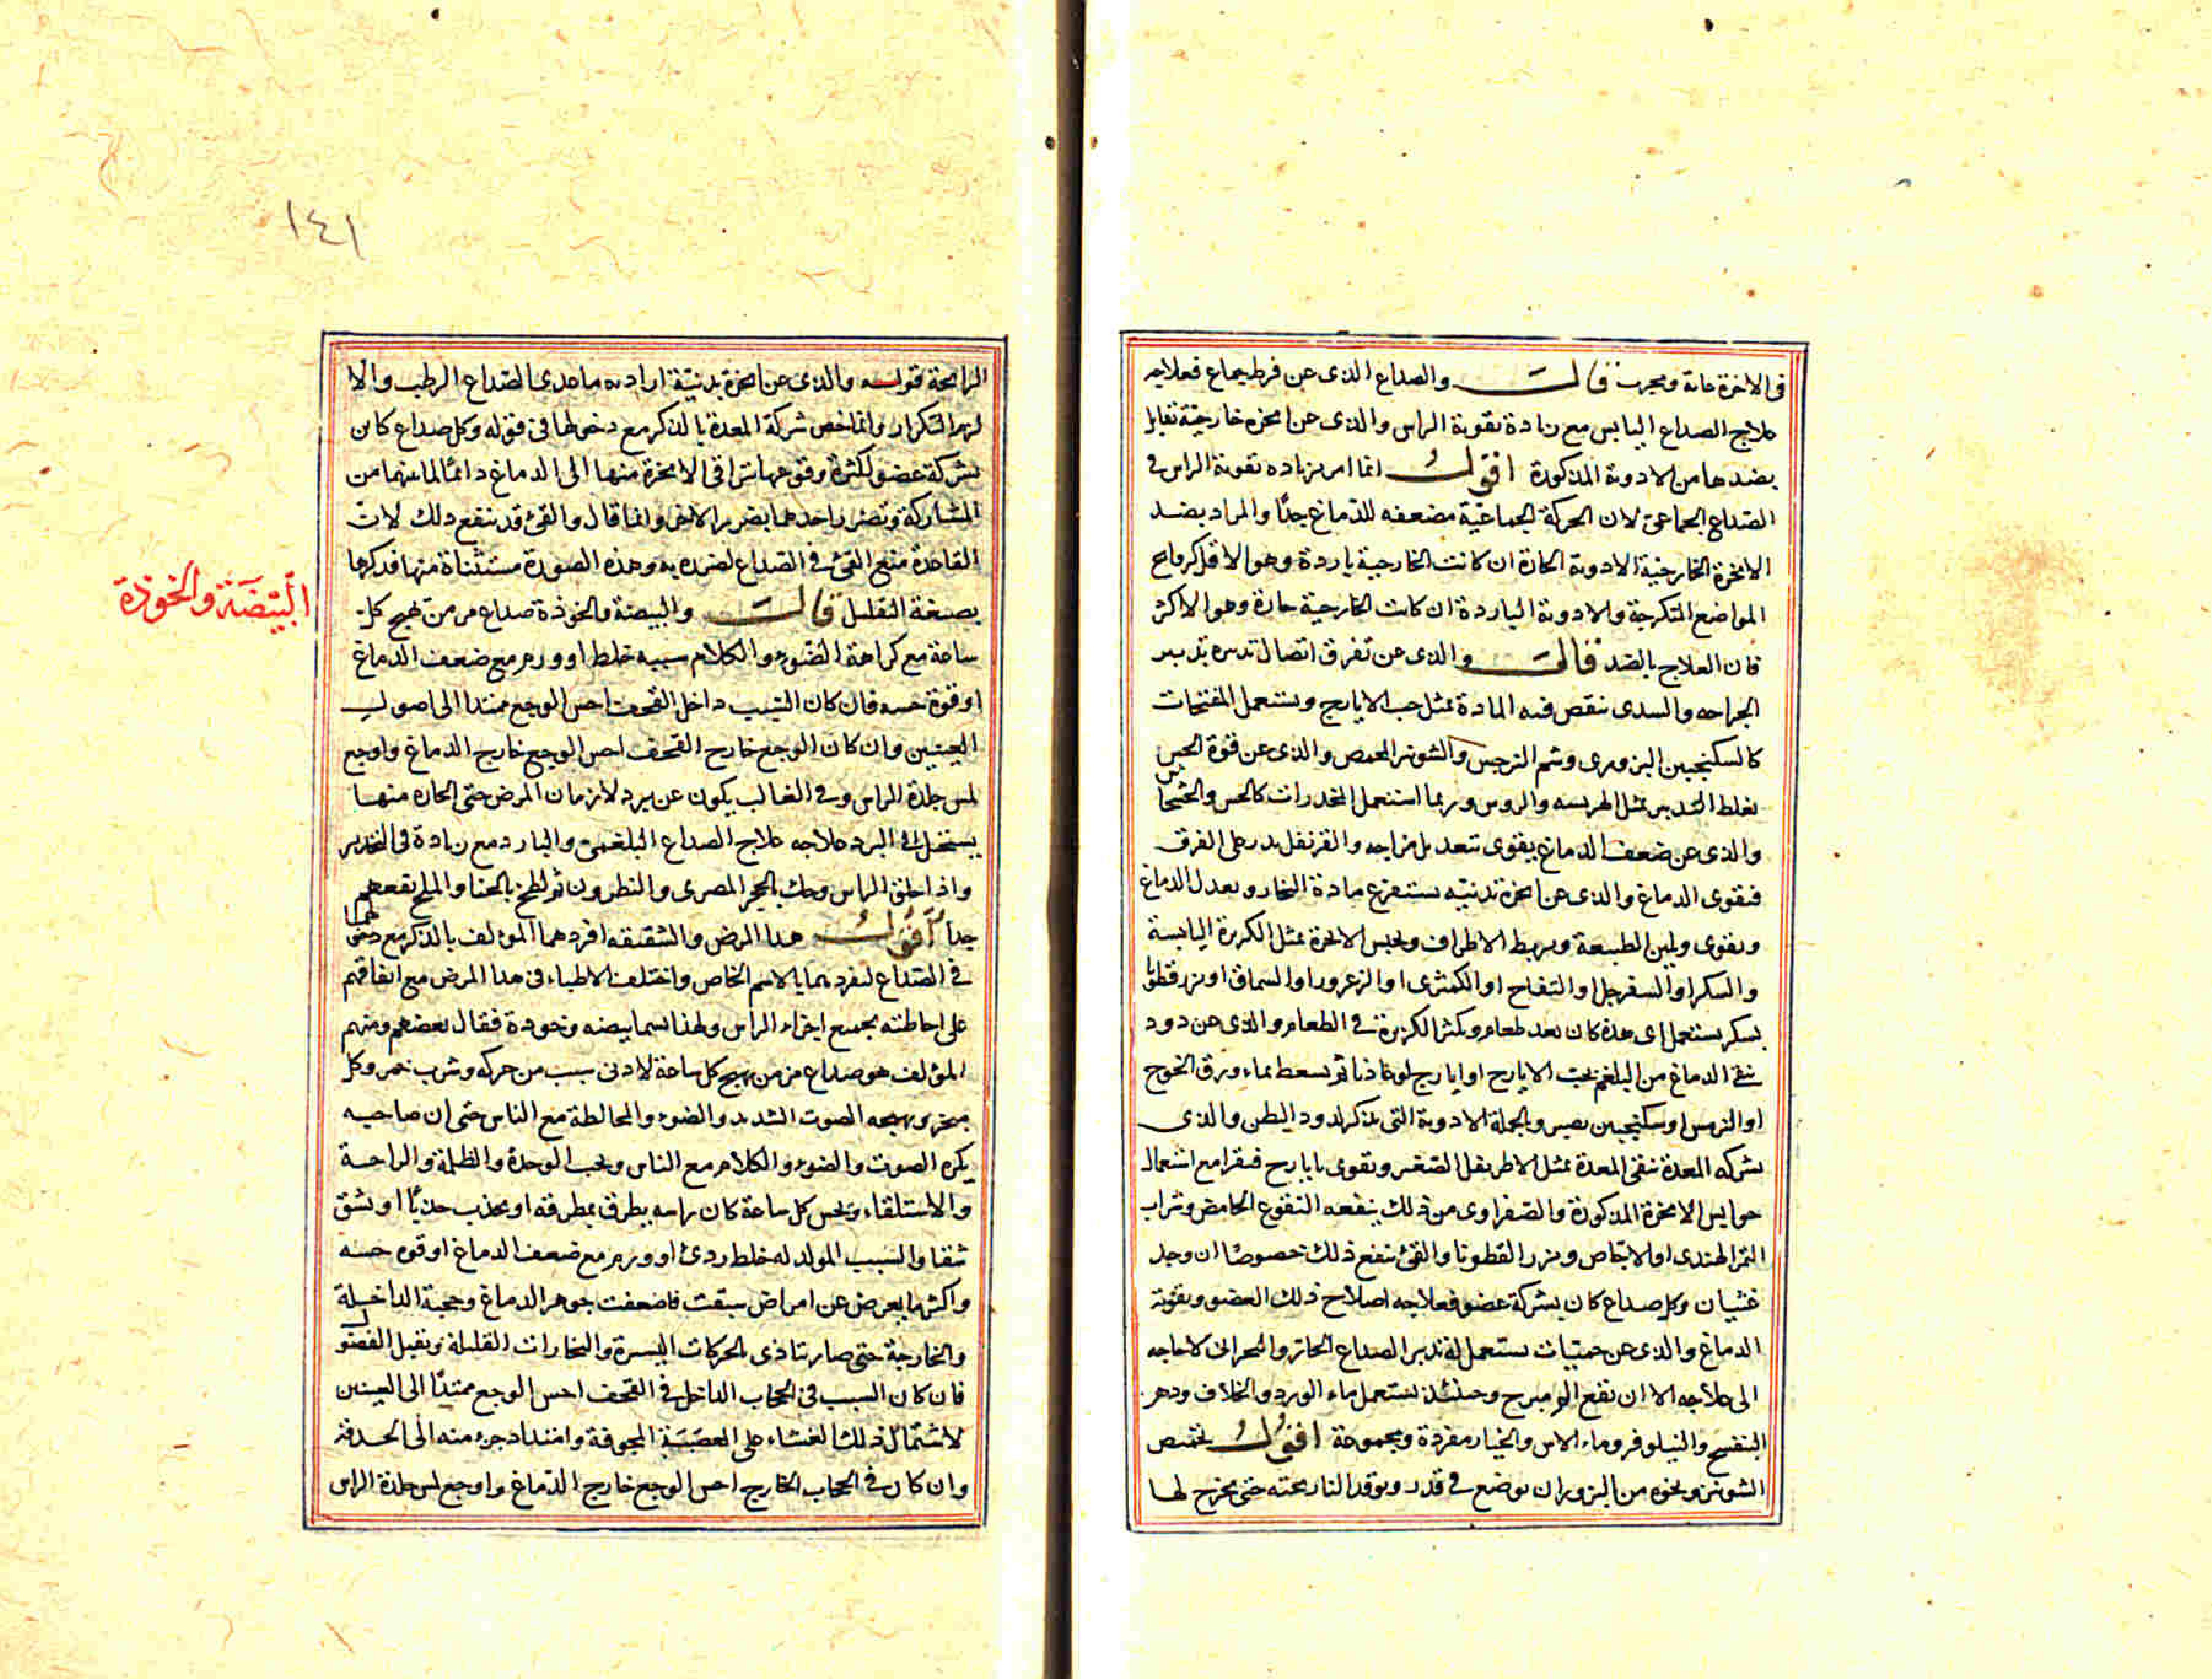 في الاخرة خاتة ومجرب قالت والصداع الذى عن فرط جماع فعلاجه
علاج الصداع اليابس مع زيادة تقوية الراس والذى عن ابخره خارجيّة تقابل
بضدها من الادوية المذكورة اقولُ انما امر بزياده تقوية الراس فى
الصّداع الجماعىّ لان الحركة الجماعيّة مضعفه للدّماغ جدّا والمراد بضد
الابخرة الخارجية الادوية الحارة ان كانت الخارجية باردة وهو الاقل كرواح
المواضع المتكرجة والادوية الباردة ان كانت الخارجية حارة وهو الاكثر
فان العلاج بالضد قالت والذى عن تفرق اتصال تدبيره تدبير
الجراحه والسدى ينقص فيه المادة بمثل حب الايارج ويستعمل المفتحات
كالسكنجبين البزورى وشم النرجس والشونيز المحمص والذى عن قوة الحس
بغلط التدبير بمثل الهريسه والروس وربما استعمل المخدرات كالخس والخشخاش
والذى عن ضعف الدماغ يقوى بتعديل مزاجه والقرنفل يذر على الفرق
فيقوى الدماغ والذى عن ابخرة بدنيّه يستفرغ مادة البخار ويعدل الدماغ
ويقوى ويلين الطبيعة ويربط الاطراف ويحبس الابخرة بمثل الكزبرة اليابسة
والسكر او السفرجل او التفاح او الكمثرى او الزعرور او السماق او بزر قطونا
بسكر يستعمل اى هذه كان بعد طعام ويكثر الكزبرة فى الطعام والذى عن دود
ينقى الدماغ من البلغم بحب الايارج او ايارج لوغاذيا ثم يسعط بماء ورق الخوخ
او الترمس او سكنجبين بصبر وبالجملة الادوية التى تذكر لدود البطن والذى
بشركه المعدة ينقى المعدة بمثل الاطريفل الصّغير وتقوى بايارج فيقرا مع استعمال
حوابس الابخرة المذكورة والصّفراوى من ذلك ينفعه النقوع الحامض وشراب
التمر الهندى او الاجّاص وبزر القطونا والقئ ينفع ذلك خصوصًا ان وجد
غثيان وكل صداع كان بشركة عضو فعلاجه اصلاح ذلك العضو وتقوية
الدماغ والذى عن حمّيات يستعمل له تدبير الصداع الحار والبحرانى لا حاجه
الى علاجه الا ان يقع المبرح وحينئذ يستعمل ماء الورد والخلاف ودهن
البنفسج والنيلوفر وماء الاس والخيار مفردة ومجموعة اقولُ تحميص
الشونيز ونحوه من البزور ان يوضع فى قدر ويوقد النار تحته حتى يخرج لها
١٤١
الرائحة قولـــه والذى عن ابخرة بدنيّة اراد به ما عدى الصّداع الرطب والا
لزم التكرار وانما خص شركة المعدة بالذكر مع دخولها فى قوله وكل صداع كان
بشركة عضو لكثرة وقوعها بتراقى الابخرة منها الى الدماغ دائمًا لما بينهما من
المشاركة وتضرر احدهما بضرر الاخر وانما قال والقئ قد ينفع ذلك لان
القاعدة منع القئ فى الصّداع لضرره به وهذه الصورة مستثناة منها فذكرها
بصيغة التقليل قالت والبيضة والخوذة صداع مزمن يهيج كل
ساعة مع كراهة الضوء والكلام سببه خلط او ورم مع ضعف الدماغ
او قوة حسه فان كان السّبب داخل القحف احس الوجع ممتدا الى اصول
العينين وان كان الوجع خارج القحف احس الوجع خارج الدماغ واوجع
لمس جلدة الراس وفى الغالب يكون عن برد لازمان المرض حتى الحاره منها
يستحيل الى البرد علاجه علاج الصداع البلغمىّ والبارد مع زيادة فى التخدير
واذا حلق الراس وحك بالحجر المصرى والنطرون ثم لطخ بالحنا والملح نفعهم
جداً اقولُ هذا المرض والشقيقه افردهما المؤلف بالذكر مع دخولهما
فى الصّداع لتفردهما بالاسم الخاص واختلف الاطباء فى هذا المرض مع اتفاقهم
على احاطته بجميع اجزاء الراس ولهذا سما بيضه وخودة فقال بعضهم ومنهم
المؤلف هو صداع مزمن يهيج كل ساعة لادنى سبب من حركه وشرب خمر وكل
مبخر ويهيجه الصوت الشديد والضوء والمخالطة مع الناس حتى ان صاحبه
يكره الصوت والضوء والكلام مع الناس ويحب الوحدة والظلمة والراحة
والاستلقاء ويحس كل ساعة كان راسه يطرق بمطرقه او يجذب جذبًا او يشق
شقا والسبب المولد له خلط ردئ او ورم مع ضعف الدماغ او قوه حسه
واكثر ما يعرض عن امراض سبقت فاضعفت جوهر الدماغ وحجبة الداخلة
والخارجة حتى صار يتاذى بالحركات اليسيرة والبخارات القليلة ويقبل الفضول
فان كان السبب فى الحجاب الداخل فى القحف احس الوجع ممتدًا الى العينين
لاشتمال ذلك الغشاء على العصبَة المجوفة وامتداد جزء منه الى الحدقة
وان كان فى الحجاب الخارج احس الوجع خارج الدّماغ واوجع لمس جلدة الراس
البيَضَة والخوذة